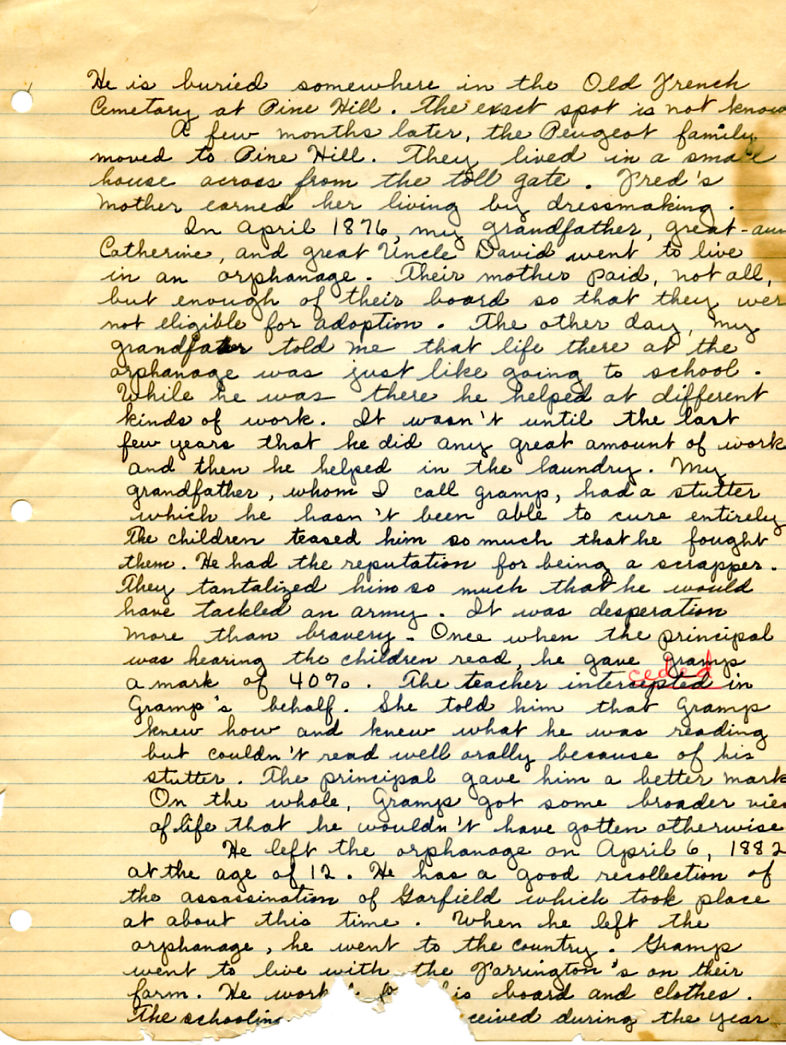 He is buried somewhere in the Old French
Cemetary at Pine Hill. The exact spot is not know
A few months later, the Peugeot family
moved to Pine Hill. They lived in a small
house across from the toll gate. Fred's
mother earned her living by dressmaking.
In April 1876, my grandfather, great-aun
Catherine, and great Uncle David went to live
in an orphanage. Their mother paid, not all,
but enough of their board so that they wer
not eligible for adoption. The other day, my
grandfather told me that life there at the
orphanage was just like going to school.
While he was there he helped at different
kinds of work. It wasn't until the last
few years that he did any great amount of work
and then he helped in the laundry. My
grandfather, whom I call gramp, had a stutter
which he hasn't been able to cure entirely
The children teased him so much that he fought
them. He had the reputation for being a scrapper.
They tantalized him so much that he would
have tackled an army. It was desperation
more than bravery. Once when the principal
was hearing the children read, he gave Gramps
ceded
a mark of 40%. The teacher intercepted in
Gramp's behalf. She told him that Gramps
knew how and knew what he was reading
but couldn't read well orally because of his
stutter. The principal gave him a better mark
On the whole, Gramps got some broader vie
of life that he wouldn't have gotten otherwise
He left the orphanage on April 6, 1882
at the age of 12. He has a good recollection of
the assassination of Garfield which took place
at about this time. When he left the
orphanage, he went to the country. Gramps
went to live with the Farrington's on their
farm. He work board and clothes.
The schooling ceived during the year